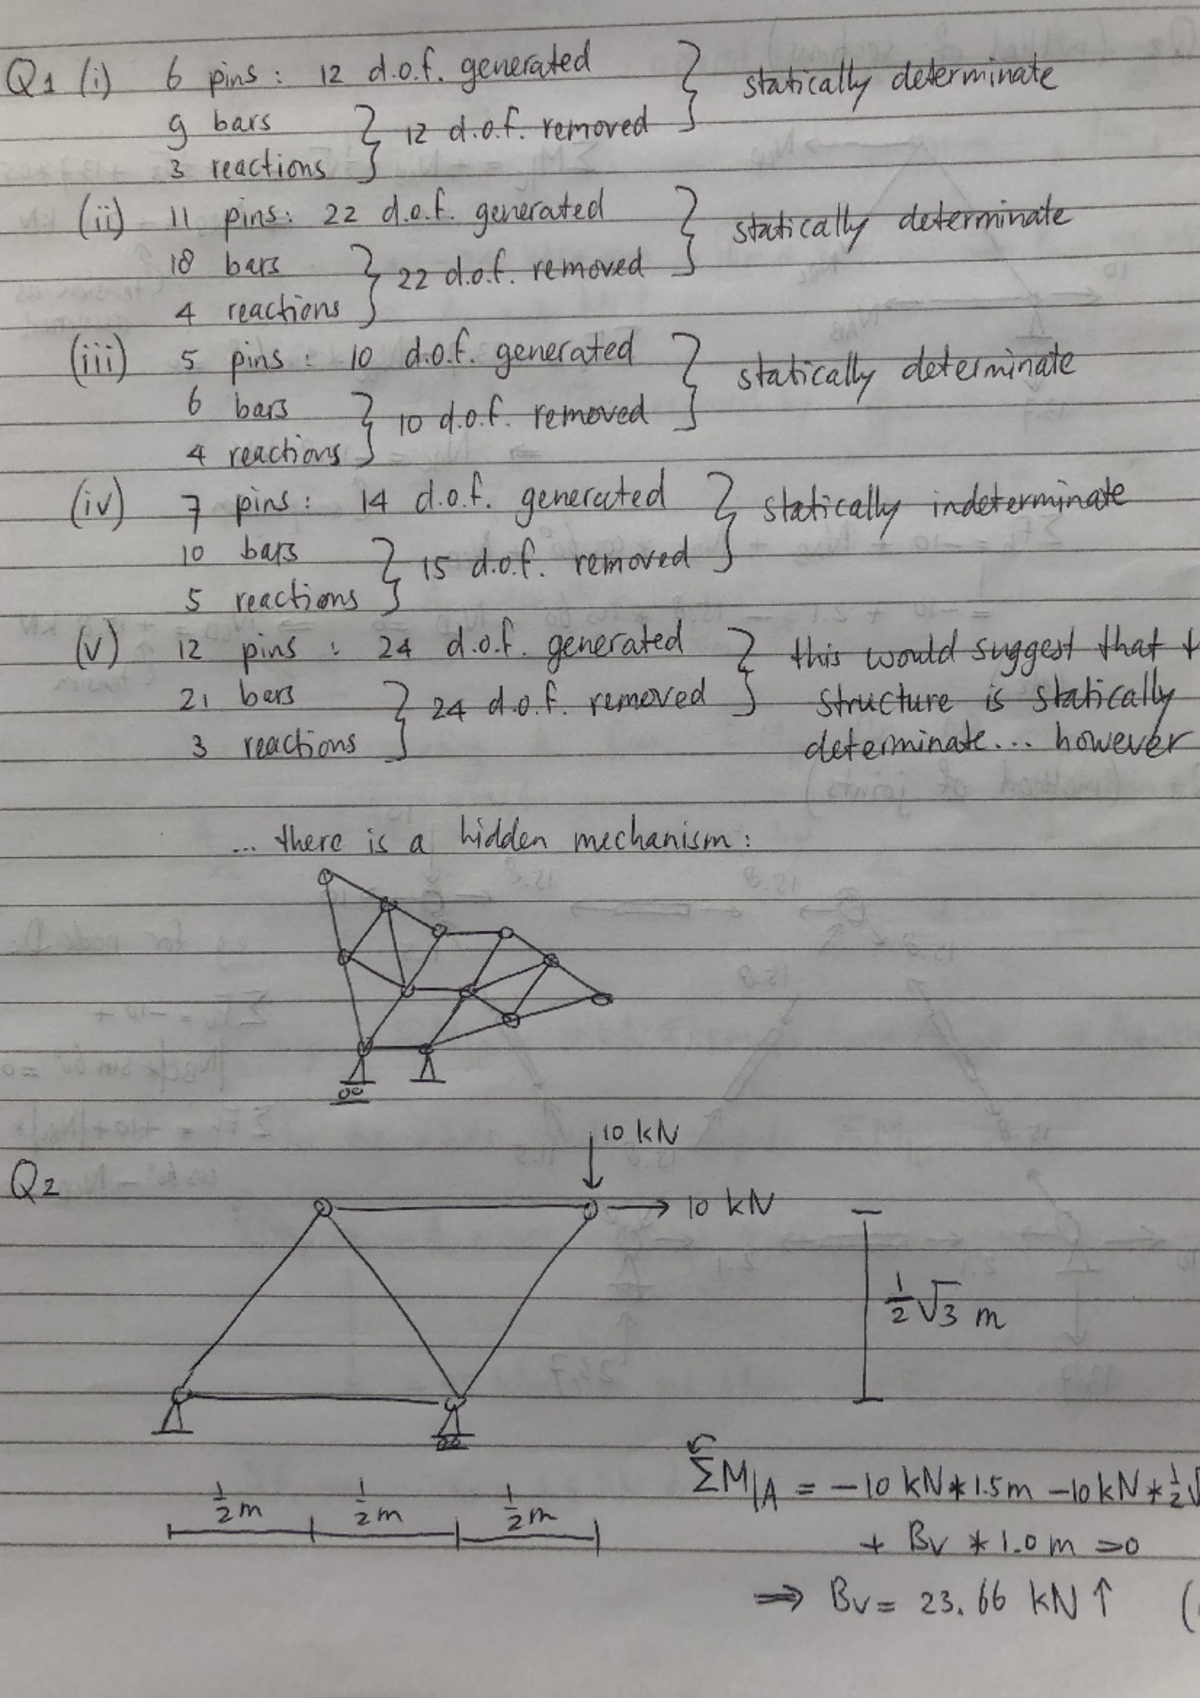 Q1 (i) 6 pins: 12 d.o.f. generated } statically determinate
9 bars } 12 d.o.f. removed
3 reactions
(ii) 11 pins: 22 d.o.f. generated } statically determinate
18 bars } 22 d.o.f. removed
4 reactions
(iii) 5 pins: 10 d.o.f. generated } statically determinate
6 bars } 10 d.o.f. removed
4 reactions
(iv) 7 pins: 14 d.o.f. generated } statically indeterminate
10 bars } 15 d.o.f. removed
5 reactions
(v) 12 pins: 24 d.o.f. generated } this would suggest that
21 bars } 24 d.o.f. removed structure is statically
3 reactions determinate... however
... there is a hidden mechanism:
10 kN
Q2
10 kN
1/2 √3 m
1/2 m 1/2 m 1/2 m
ΣM|A = -10 kN * 1.5 m - 10 kN * 1/2 √
+ Bv * 1.0 m = 0
⇒ Bv = 23.66 kN ↑ (